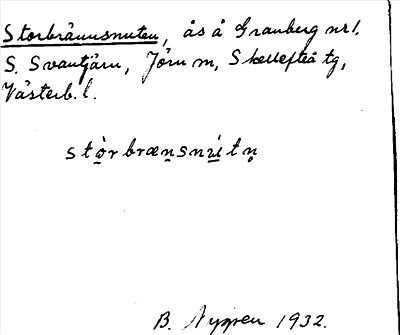 Storbrännsnuten, ås å Granberg nr 1.
S. Svantjärn, Jörn sn, Skellefteå tg,
Västerb. l.
stòrbrænsnùtn̥
B. Nygren 1932.